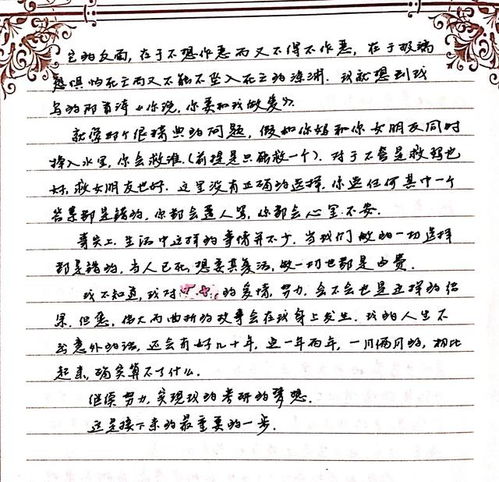 它的反面,在于不想作恶而又不得不作恶,在于
惧怕死亡而又不能不坠入死亡的深渊。我就想到我
写的阿育诗《你说,你要和我做爱》。
就像那个很精典的问题,假如你妈和你女朋友同时
掉入水里,你会救谁(前提是只能救一个)。对于不管是救妈也
好,救女朋友也好,这里没有正确的选择,你选任何其中一个
答案都是错的,你都会遭人骂,你都会心里不安。
事实上,生活中这样的事情并不少,当我们做的一切选择
都是错的,当人已死,想要其复活,做一切也都是白费。
我不知道,我对 的爱情,努力,会不会也是这样的结
果,但愿,伟大而曲折的故事会在我身上发生。我的人生不
出意外的话,还会有好几十年,这一年两年,一月两月的,相比
起来,确实算不了什么。
继续努力,实现我的考研的梦想。
这是接下来的最重要的一步。